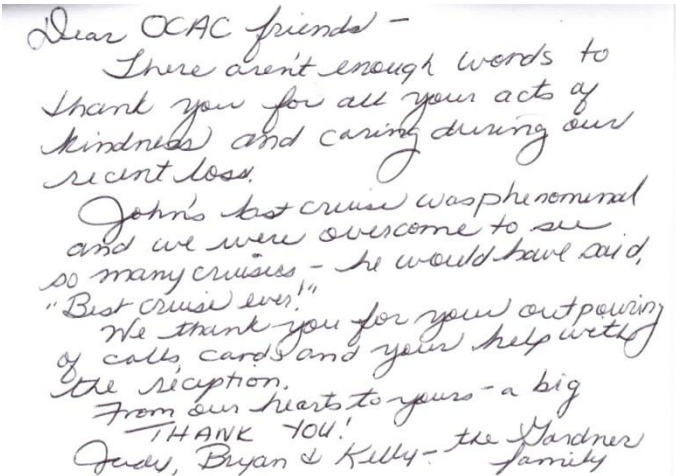 Dear OCAC friends -
There aren't enough words to
thank you for all your acts of
kindness and caring during our
recent loss.
John's last cruise was phenomenal
and we were overcome to see
so many cruisies - he would have said,
"Best cruise ever!"
We thank you for your outpouring
of calls, cards and your help with
the reception.
From our hearts to yours - a big
THANK YOU!
Judy, Bryan & Kelly - the Gardner
family